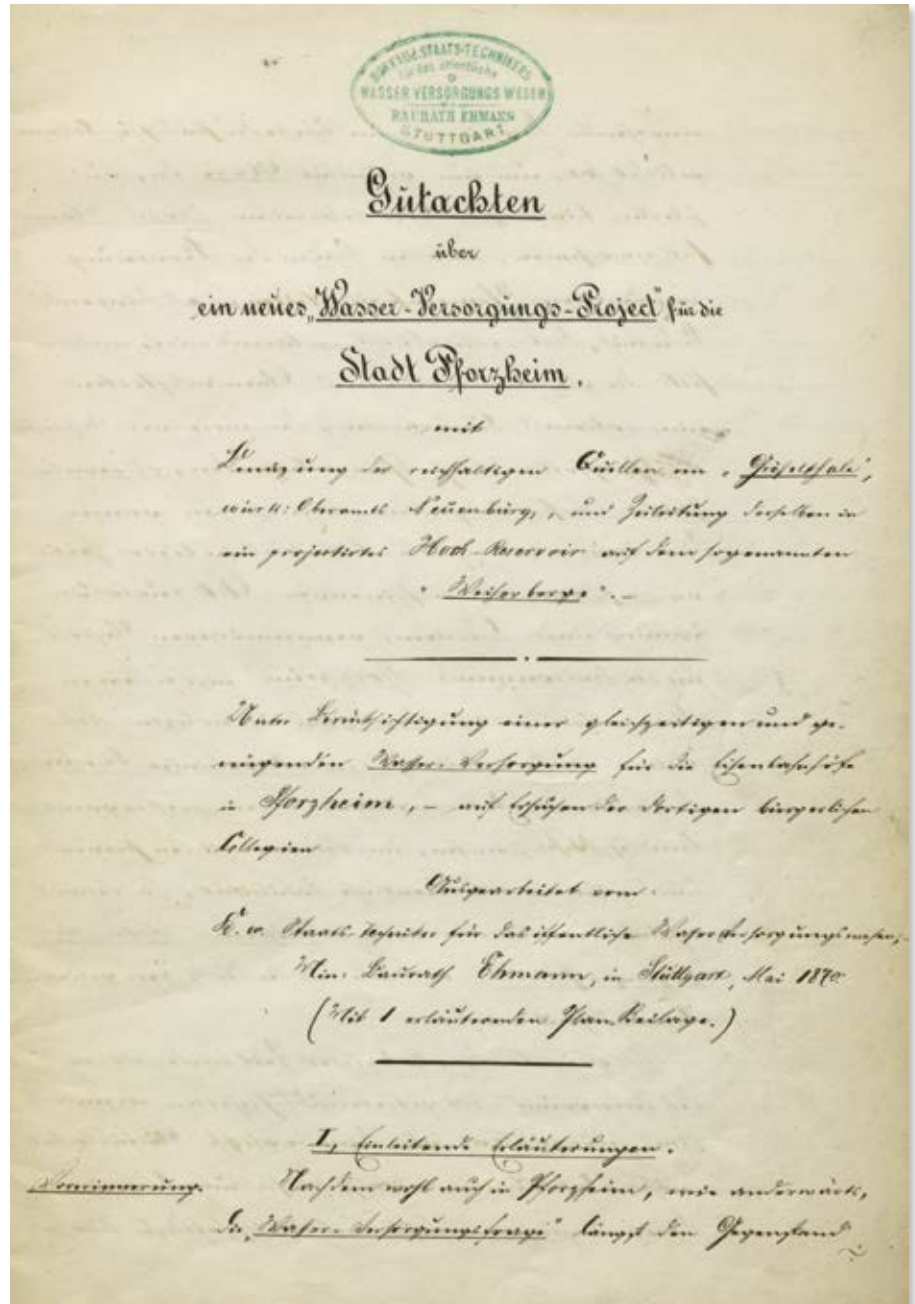 BUREAU d. STAATS-TECHNIKERS
für das öffentliche
WASSER VERSORGUNGS WESEN
BAURATH EHMANN
STUTTGART
Gutachten
über
ein neues „Wasser-Versorgungs-Project“ für die
Stadt Pforzheim.
mit
Benützung der reichhaltigen Quellen im „Grösselthale“,
württ: Oberamts Neuenbürg, und Zuleitung derselben in
ein projectirtes Hoch-Reservoir auf dem sogenannten
„Weiherberge“. –
Unter Berücksichtigung einer gleichzeitigen und ge-
nügenden Wasser-Versorgung für die Eisenbahnhöfe
in Pforzheim, – auf Ersuchen der dortigen bürgerlichen
Collegien
Ausgearbeitet vom
K. w. Staats-Techniker für das öffentliche Wasserversorgungswesen,
Min: Baurath Ehmann, in Stuttgart, Mai 1870.
(Mit 1 erläuternden Plan-Beilage.)
I, Einleitende Erläuterungen.
Vorerinnerung.
Nachdem wohl auch in Pforzheim, wie anderwärts,
die „Wasser-Versorgungsfrage“ längst den Gegenstand